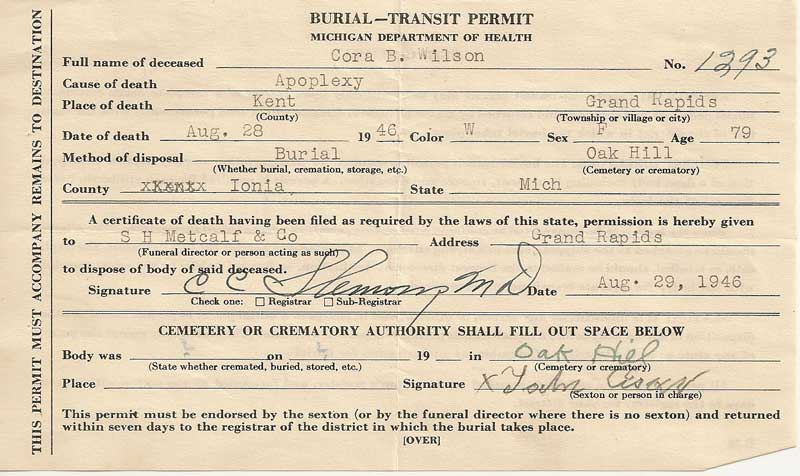 BURIAL—TRANSIT PERMIT
MICHIGAN DEPARTMENT OF HEALTH
THIS PERMIT MUST ACCOMPANY REMAINS TO DESTINATION
Full name of deceased Cora B. Wilson No. 1293
Cause of death Apoplexy
Place of death Kent Grand Rapids
(County) (Township or village or city)
Date of death Aug. 28 1946 Color W Sex F Age 79
Method of disposal Burial Oak Hill
(Whether burial, cremation, storage, etc.) (Cemetery or crematory)
County Ionia State Mich
A certificate of death having been filed as required by the laws of this state, permission is hereby given
to S H Metcalf & Co Address Grand Rapids
(Funeral director or person acting as such)
to dispose of body of said deceased.
Signature C C Slemons MD Date Aug. 29, 1946
Check one: Registrar Sub-Registrar
CEMETERY OR CREMATORY AUTHORITY SHALL FILL OUT SPACE BELOW
Body was on 19 in Oak Hill
(State whether cremated, buried, stored, etc.) (Cemetery or crematory)
Place Signature x John
(Sexton or person in charge)
This permit must be endorsed by the sexton (or by the funeral director where there is no sexton) and returned
within seven days to the registrar of the district in which the burial takes place.
[OVER]